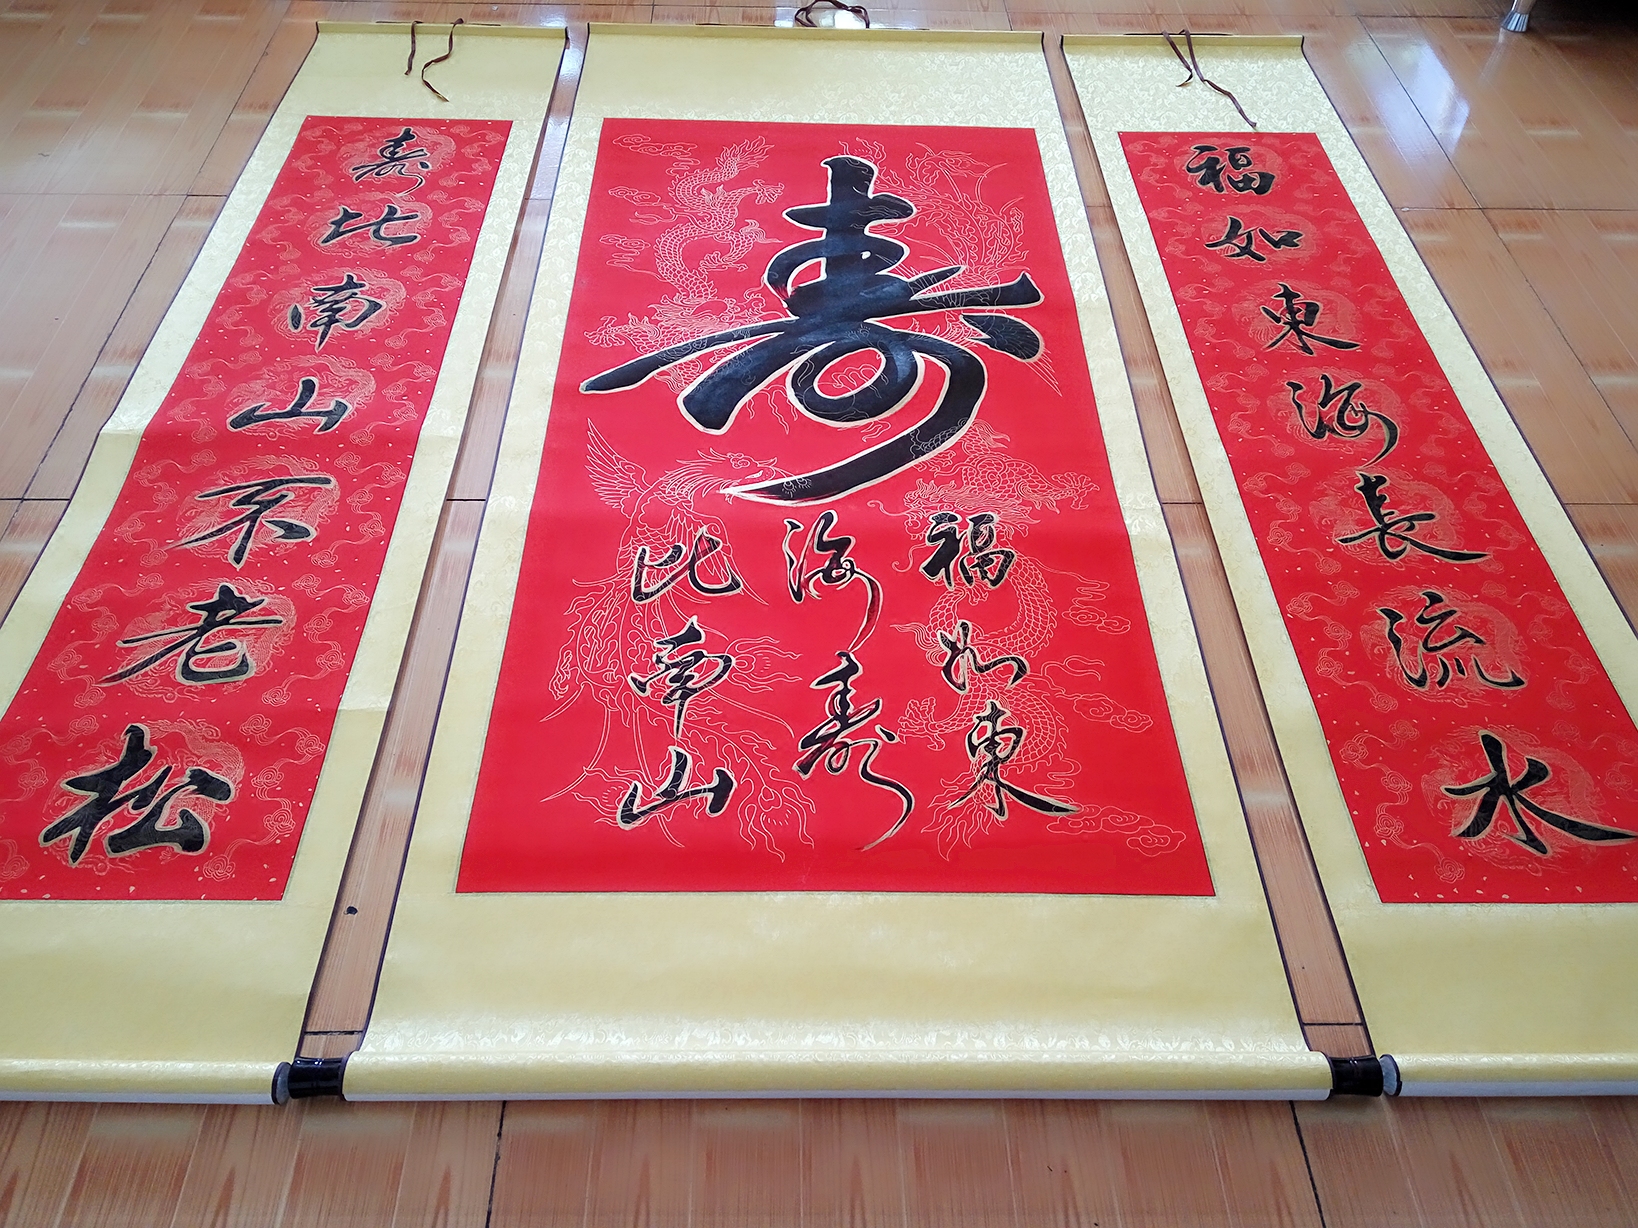 福如東海長流水
壽
福如東
海壽
比南山
壽比南山不老松